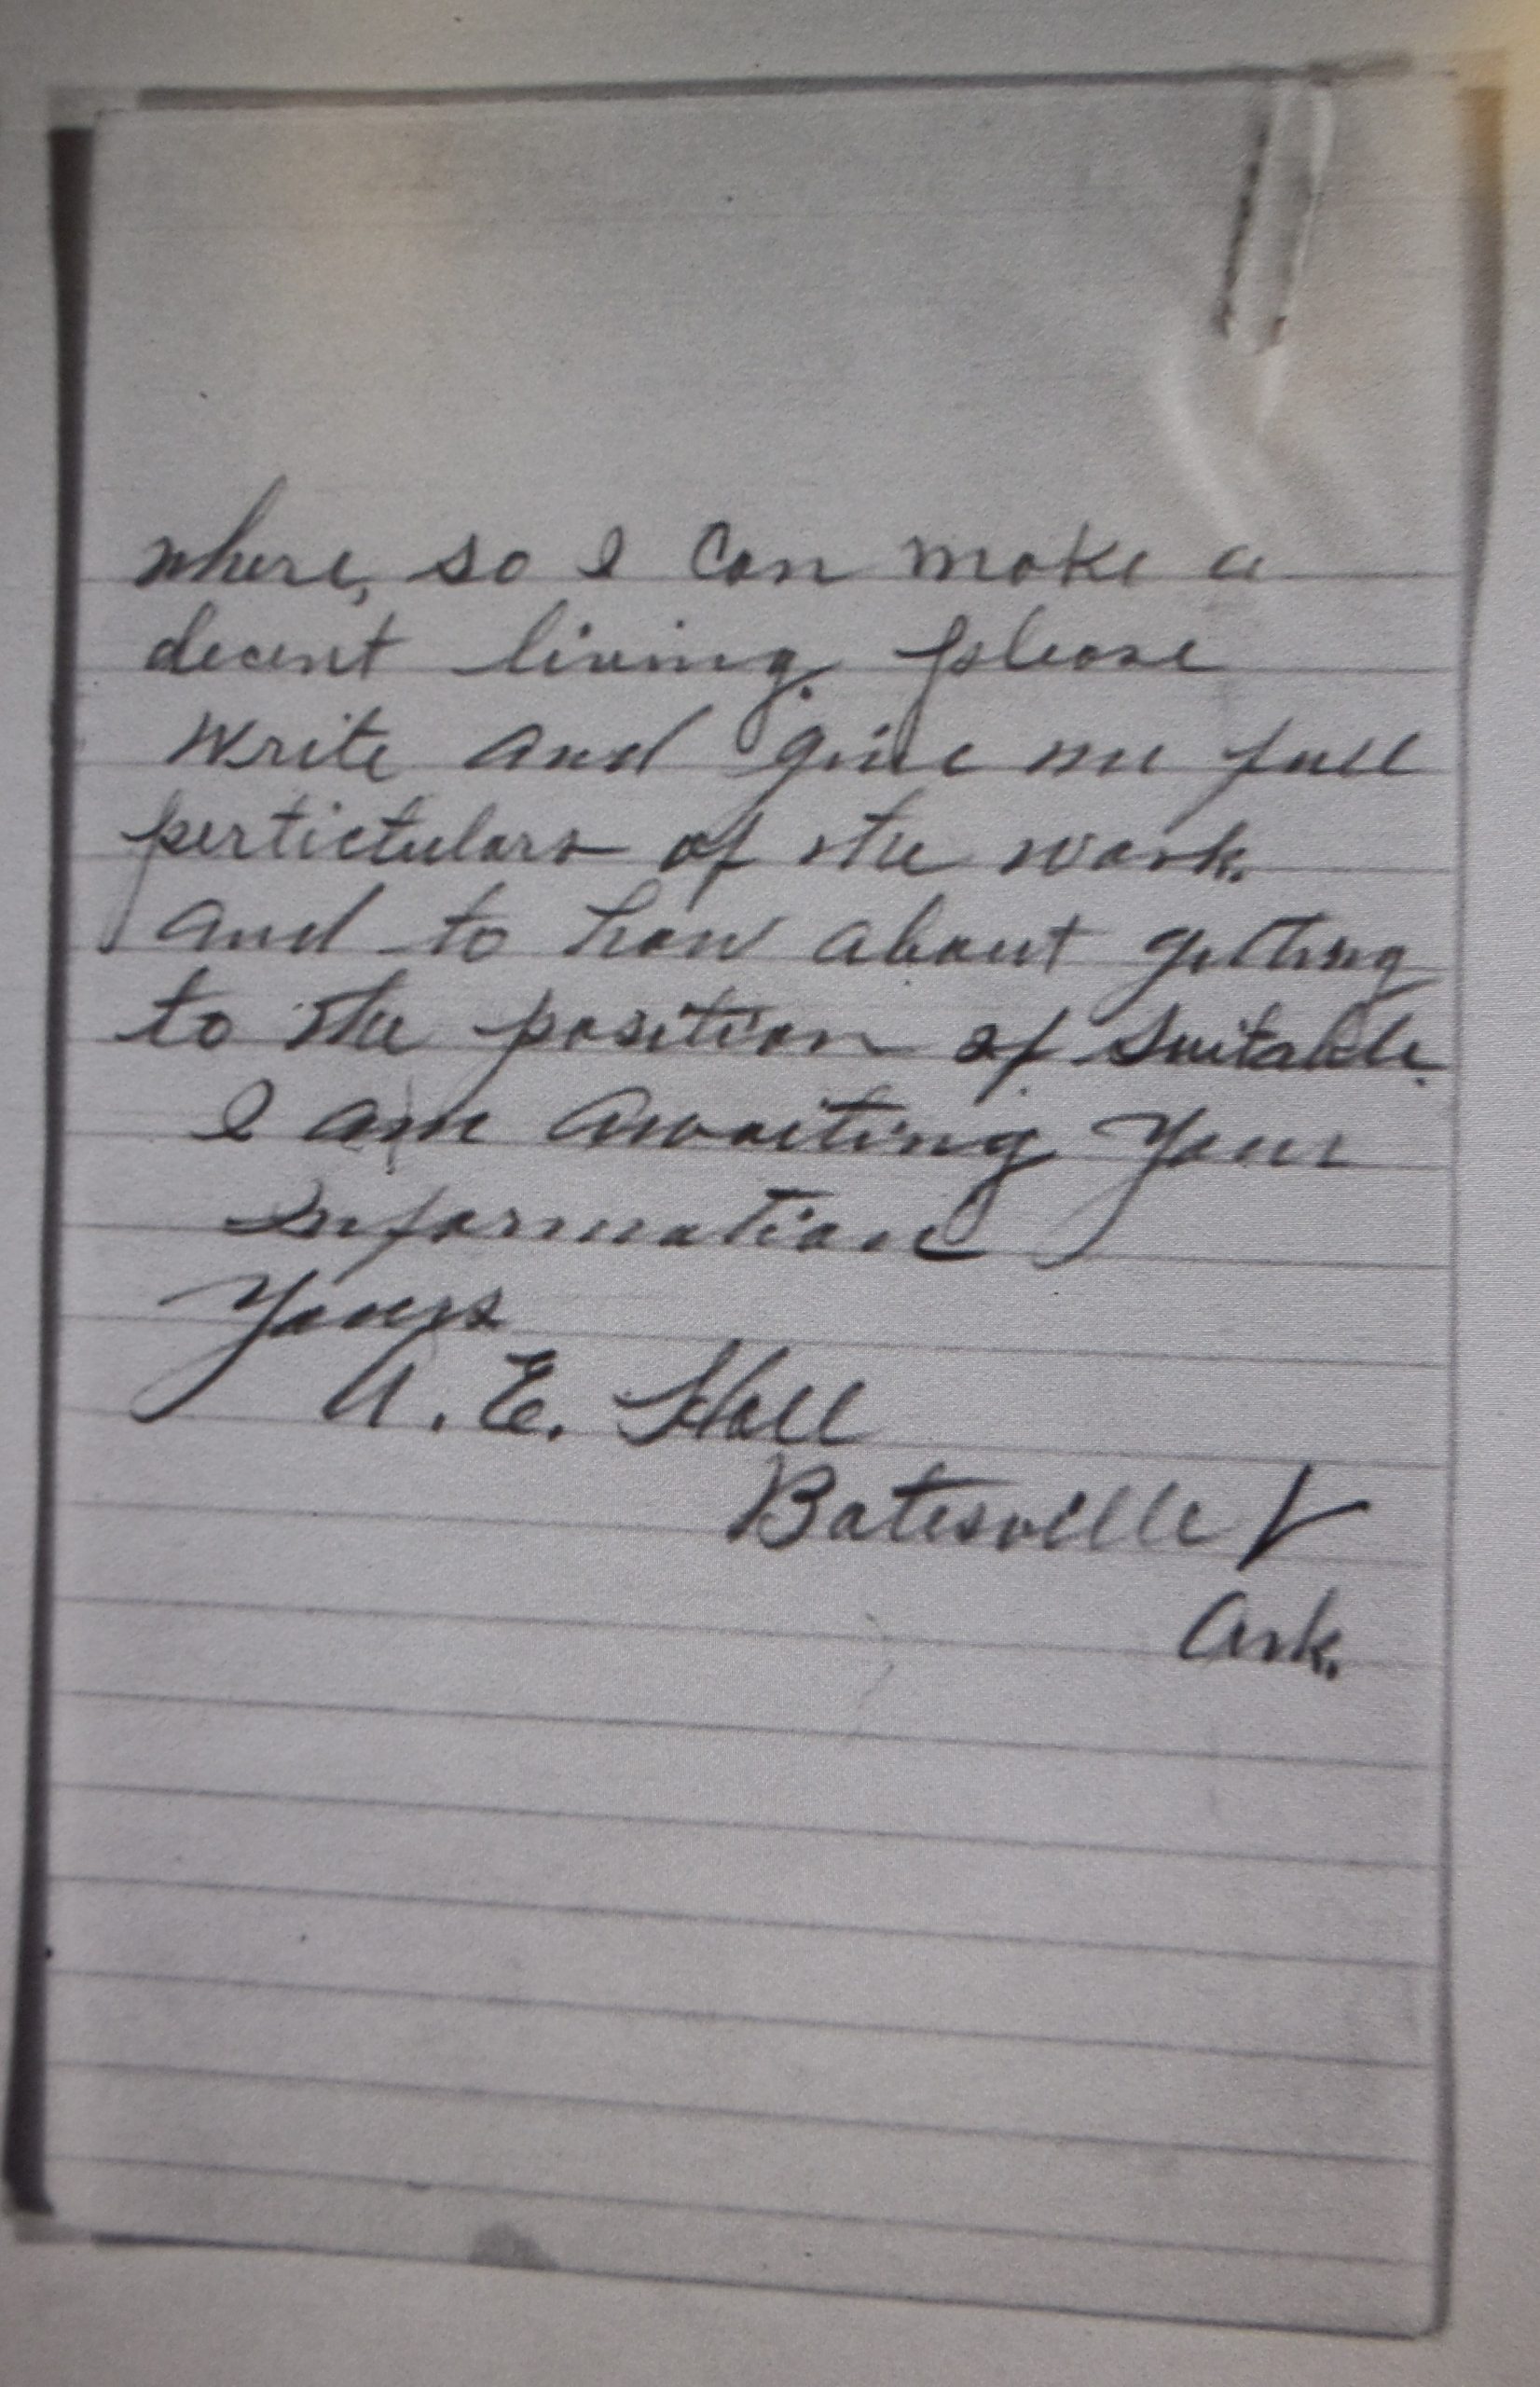 where, so I Can make a
decent living. please
Write and give me full
pertictulars of the work.
And to how about getting
to the position of Suitable.
I am Awaiting Your
Information
Yours
A. E. Hall
Batesville
Ark.